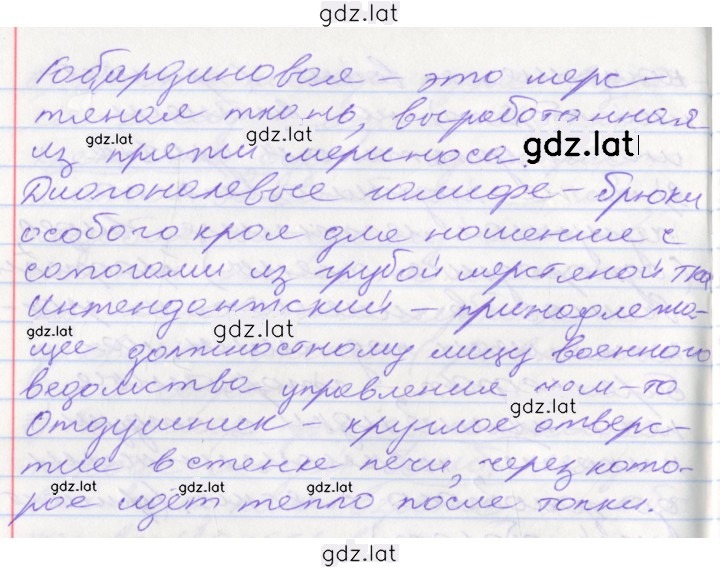 gdz.lat
Габардиновая – это шерс-
тяная ткань, выработанная
gdz.lat gdz.lat gdz.lat
из пряжи мериноса.
Диагоналевые галифе – брюки
особого кроя для ношения с
сапогами из грубой шерстяной тка
Интендантский – принадлежа-
gdz.lat gdz.lat
щее должностному лицу военного
ведомства управления чем-то
gdz.lat
Отдушник – круглое отверс-
тие в стенке печи, через кото-
gdz.lat gdz.lat gdz.lat
рое идёт тепло после топки.
gdz.lat